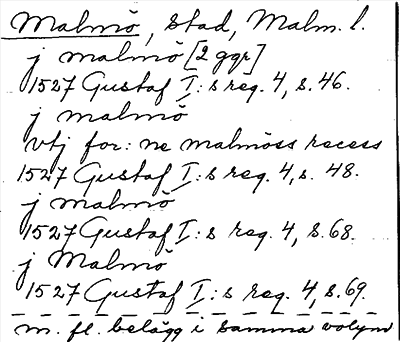 Malmö, stad, Malm. l.
j malmö [2 ggr]
1527 Gustaf I:s reg. 4, s. 46.
j malmö
vtj for:ne malmöss recess
1527 Gustaf I:s reg. 4, s. 48.
j malmö
1527 Gustaf I:s reg. 4, s. 68.
j Malmö
1527 Gustaf I:s reg. 4, s. 69.
m. fl. belägg i samma volym